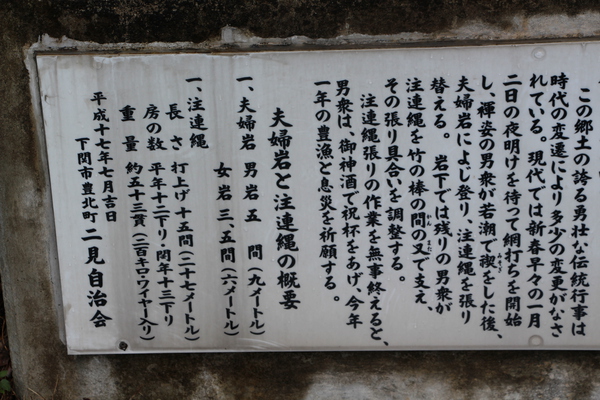 この郷土の誇る男壮な伝統行事は
時代の変遷により多少の変更がなさ
れている。現代では新春早々の一月
二日の夜明けを待って綱打ちを開始
し、褌姿の男衆が若潮で禊をした後、
夫婦岩によじ登り、注連縄を張り
替える。 岩下では残りの男衆が
注連縄を竹の棒の間の又で支え、
その張り具合いを調整する。
注連縄張りの作業を無事終えると、
男衆は、御神酒で祝杯をあげ、今年
一年の豊漁と息災を祈願する。
夫婦岩と注連縄の概要
一、夫婦岩 男岩 五 間(九メートル)
女岩 三、五間(六メートル)
一、注連縄
長さ 打上げ十五間(二十七メートル)
房の数 平年十二下り・閏年十三下り
重量 約五十三貫(二百キロ・ワイヤー入り)
平成十七年七月吉日
下関市豊北町 二見自治会